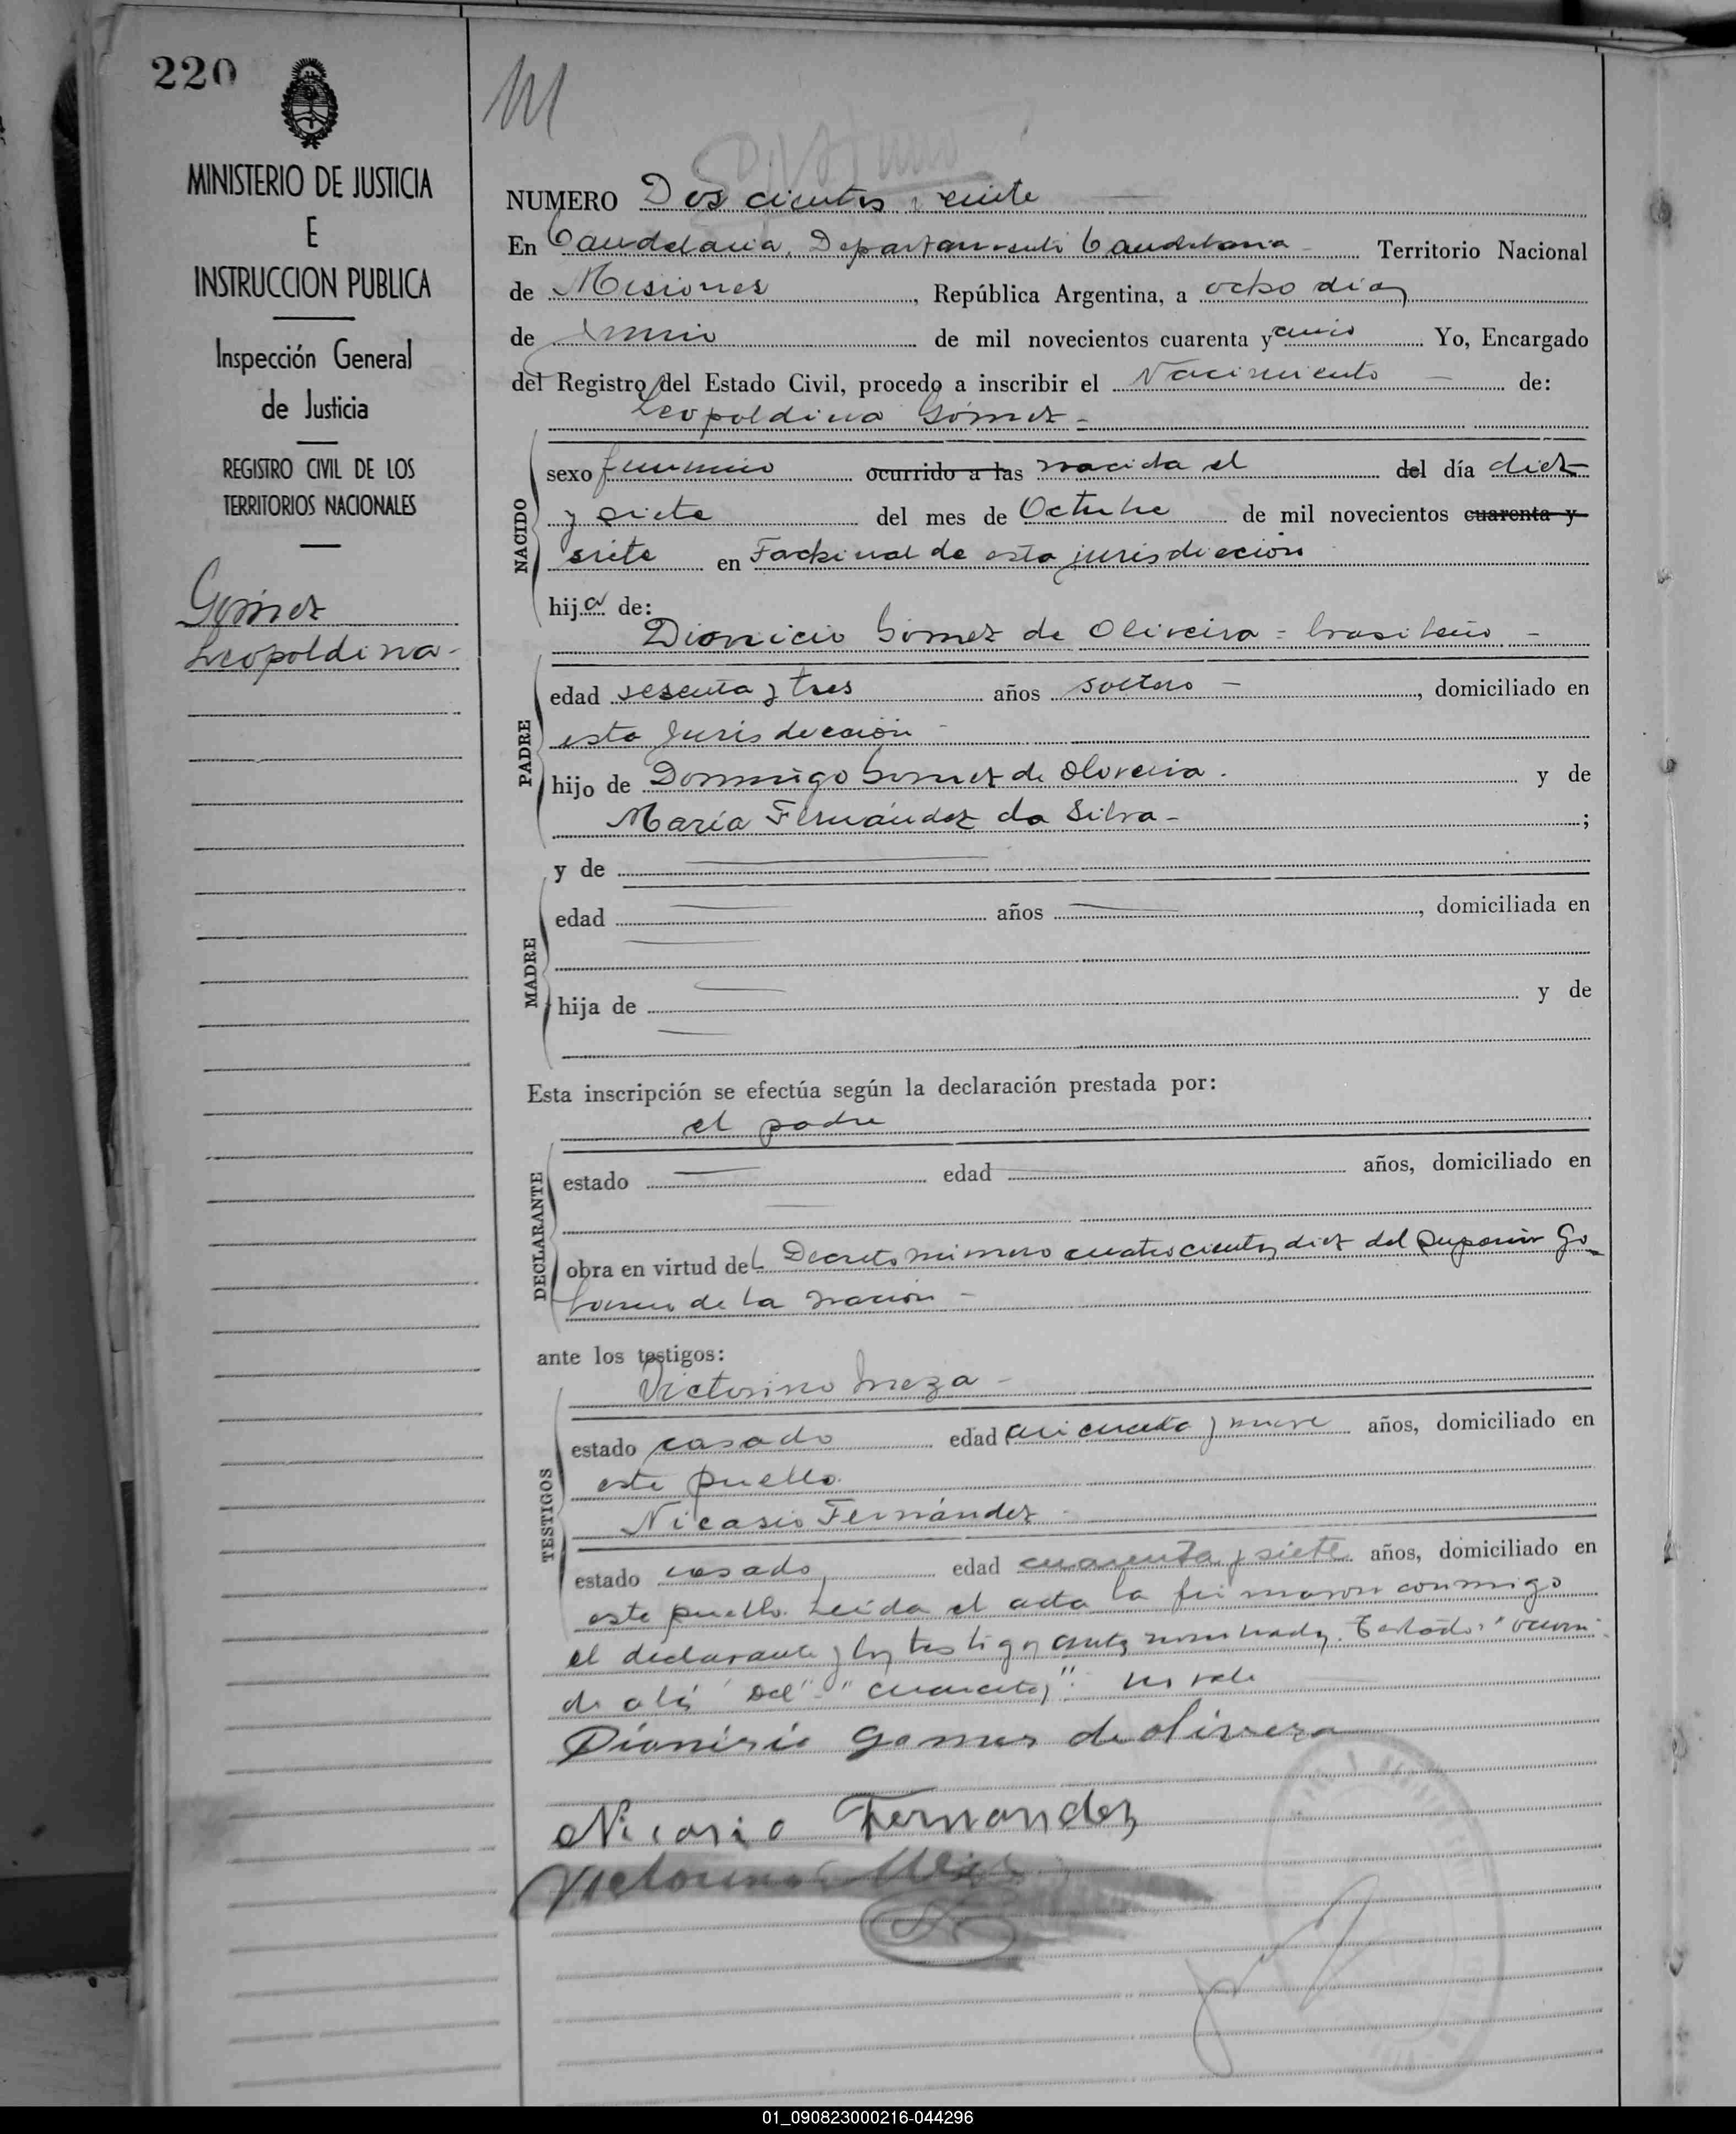 220
MINISTERIO DE JUSTICIA
E
INSTRUCCION PUBLICA
Inspección General
de Justicia
REGISTRO CIVIL DE LOS
TERRITORIOS NACIONALES
Gómez
Leopoldina -
NUMERO Doscientos veinte
En Candelaria, Departamento Candelaria Territorio Nacional
de Misiones, República Argentina, a ocho días
de Junio de mil novecientos cuarenta y cinco Yo, Encargado
del Registro del Estado Civil, procedo a inscribir el Nacimiento - de:
Leopoldina Gómez -
NACIDO
sexo femenino ocurrido a las nacida el del día diez
y siete del mes de Octubre de mil novecientos cuarenta y
siete en Fachinal de esta jurisdicción
hija de:
Dionicio Gómez de Oliveira = brasileño -
PADRE
edad sesenta y tres años soltero -, domiciliado en
esta Jurisdicción -
hijo de Domingo Gomez de Oliveira. y de
María Fernández da Silva - ;
y de
MADRE
edad años, domiciliada en
hija de y de
Esta inscripción se efectúa según la declaración prestada por:
el padre
DECLARANTE
estado edad años, domiciliado en
obra en virtud del Decreto número cuatrocientos diez del Superior Go-
bierno de la nación -
ante los testigos:
Victorino Meza -
TESTIGOS
estado casado edad cincuenta y nueve años, domiciliado en
este pueblo.
Nicasio Fernández -
estado casado, edad cuarenta y siete años, domiciliado en
este pueblo. Leída el acta la firmaron conmigo
el declarante y los testigos antes nombrados. Testado: "ocurri-
do a las" "del" - "cuarenta y": no vale
Dionisio Gomes de Olivera
Nicasio Fernandez
Victorino Meza
01_090823000216-044296